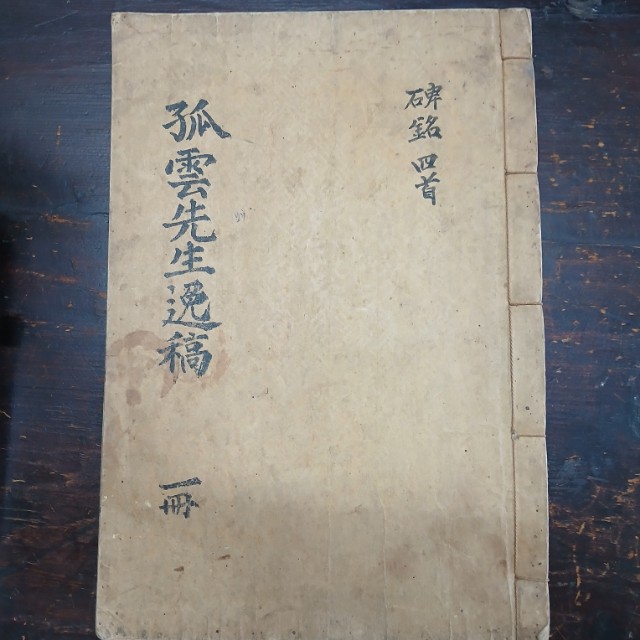 碑銘 四首
孤雲先生逸稿 一冊